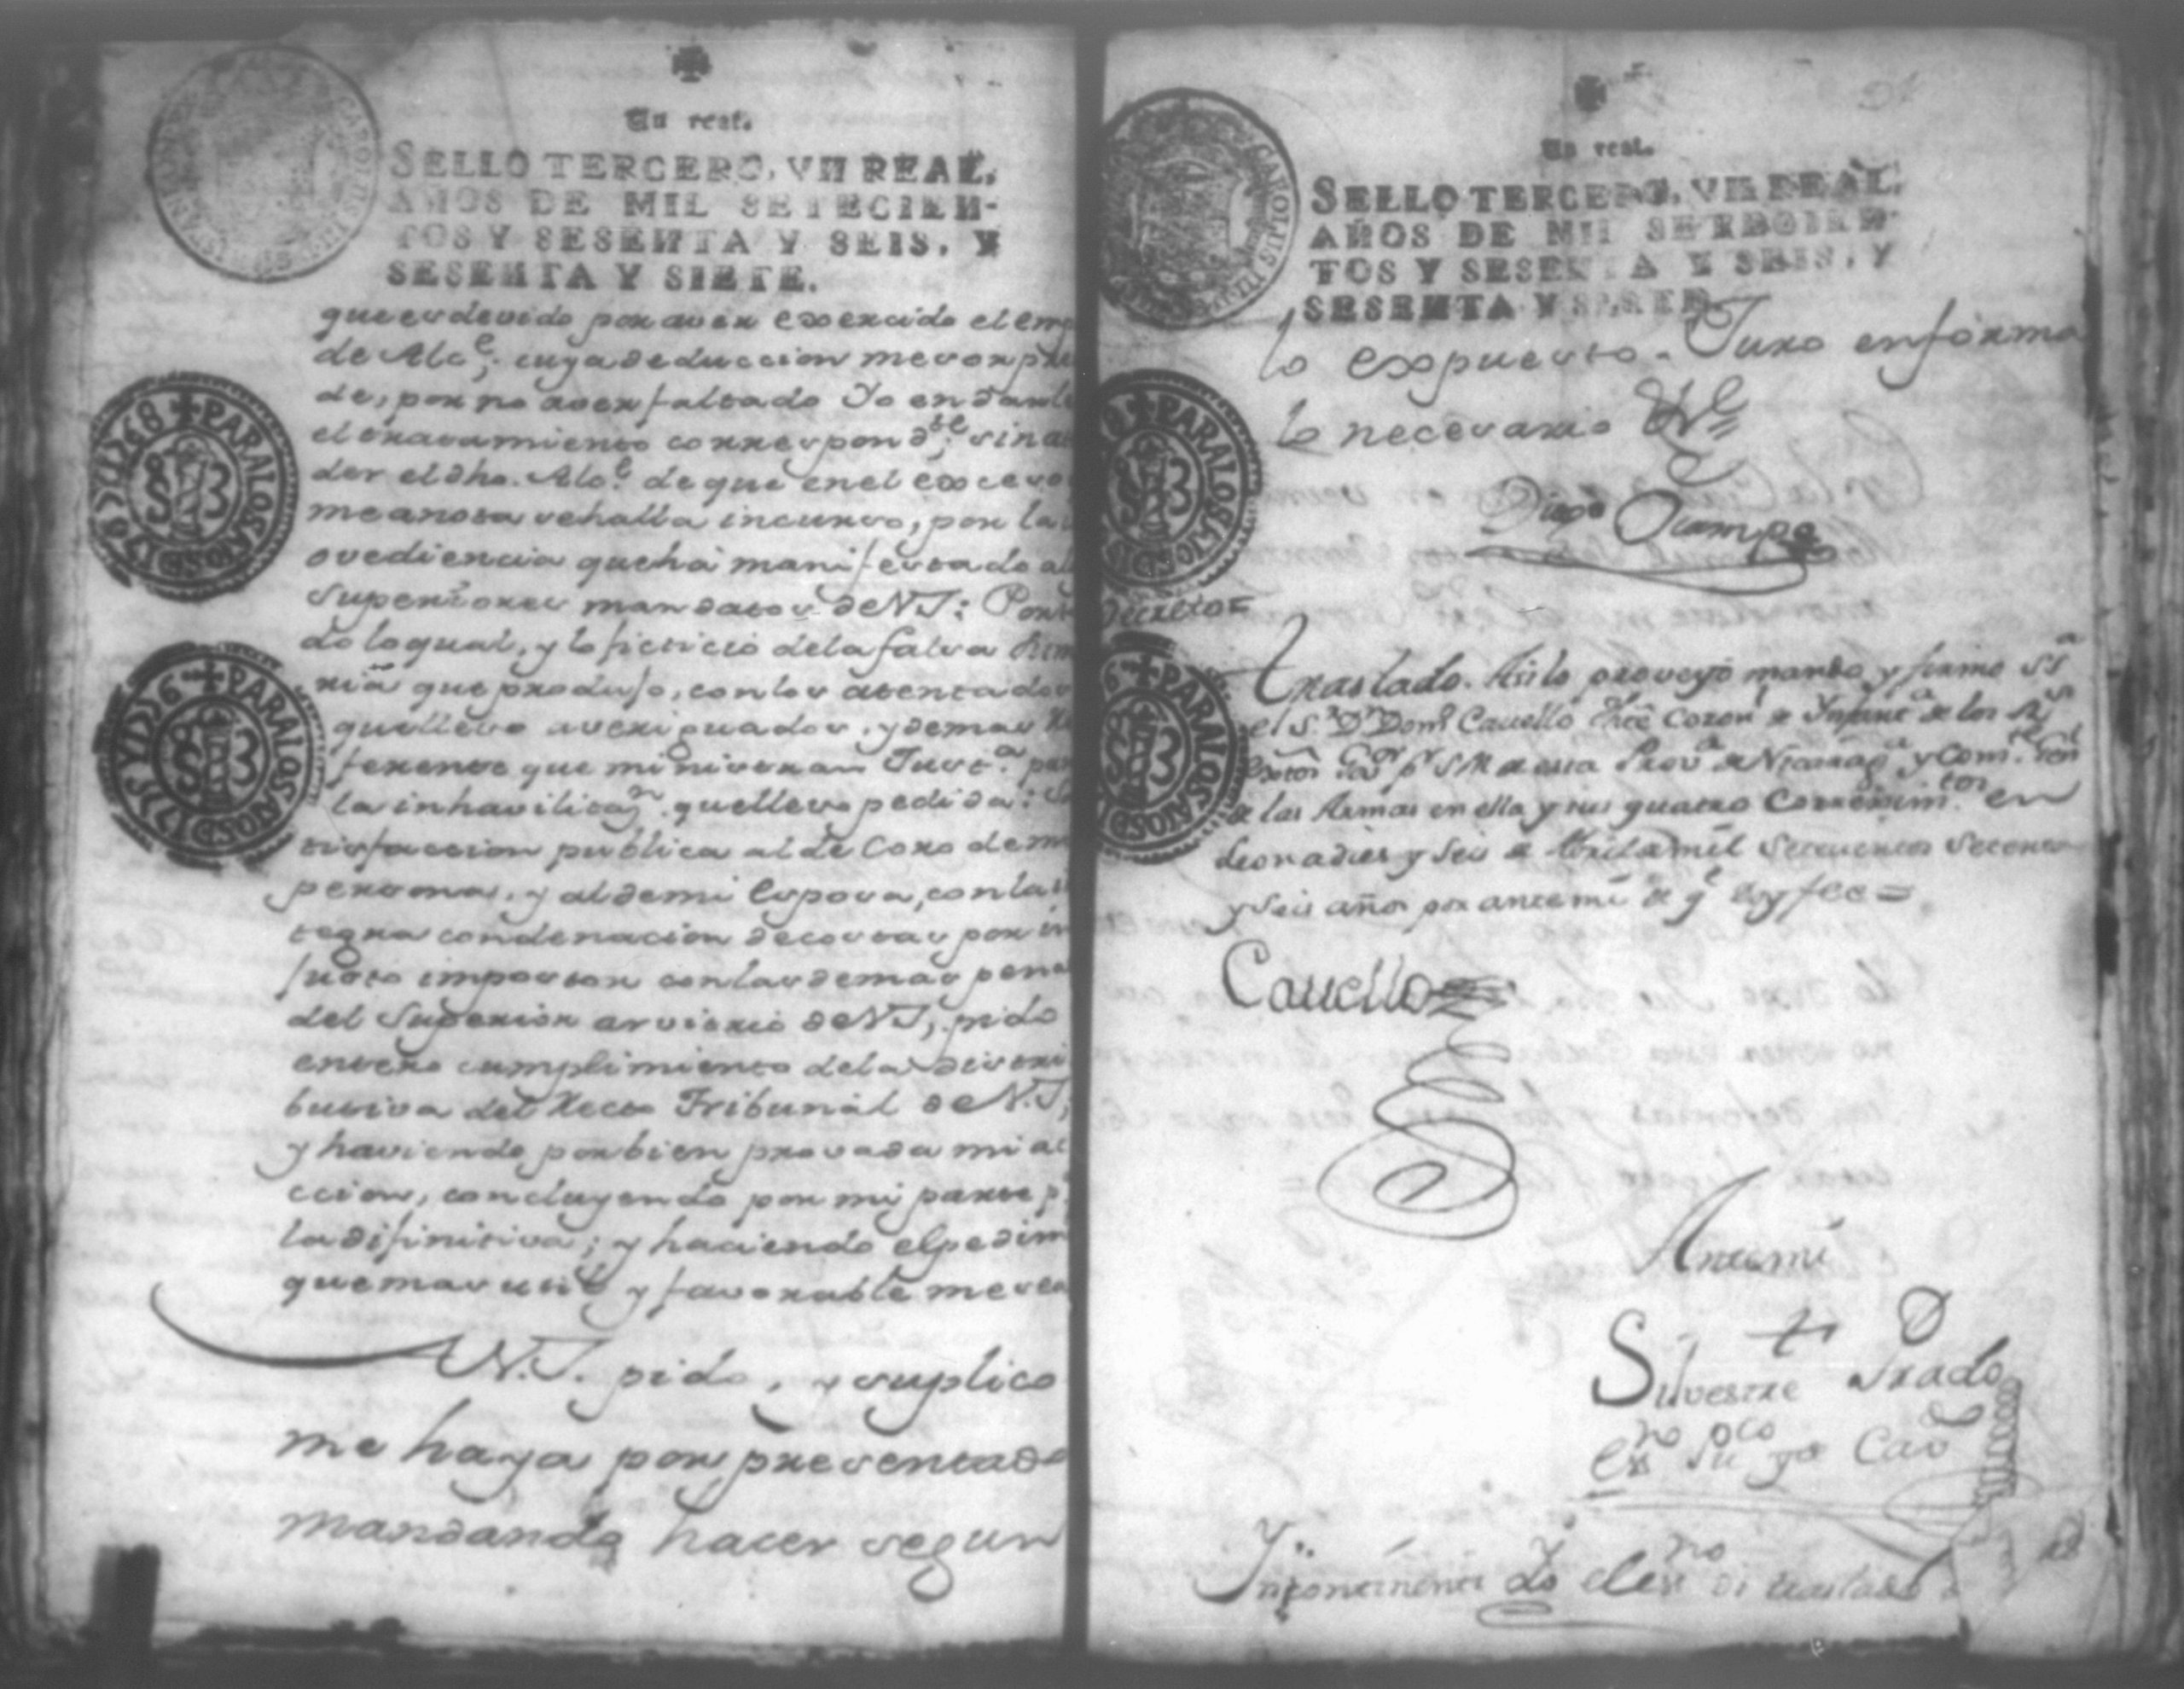 Un real.
SELLO TERCERO, VN REAL,
AÑOS DE MIL SETECIEN-
TOS Y SESENTA Y SEIS, Y
SESENTA Y SIETE.
que es devido por aver exercido el emp
de Alc.e; cuya deduccion me corr
de, por no aver faltado Yo en darle
el tratamiento correspond.te; sin a
der el dho. Alc.e de que en el exceso
me anota se halla incurso, por la
ovediencia que há manifestado al
Superiores mandatos de V.S.: Por
do lo qual, y lo ficticio de la falsa
ria que produjo, con los atentados
que llevo averiguados, y demas
ferente que ministran Just.a par
la inhavilitaz.n que llevo pedida:
tisfaccion publica al de Coro de mi
persona, y al de mi Esposa, con la
tegra condenacion de costas por in
justo impostor con las demas pena
del Superior arvitrio de V.S., pido
entero cumplimiento de la distri
butiva del Recto Tribunál de V.S.,
y haviendo por bien provada mi a
ccion, concluyendo por mi parte p.a
la difinitiva; y haciendo el pedim
que mas util y favorable me sea
V.S. pido, y suplico
me haya por presentado
mandando hacer segun
PARA LOS AÑOS DE 1767 Y 1768
PARA LOS AÑOS DE 1775 Y 1776
Un real.
SELLO TERCERO, VN REAL,
AÑOS DE MIL SETECIEN-
TOS Y SESENTA Y SEIS, Y
SESENTA Y SIETE.
lo expuesto. Juro en forma
lo necesario &c.
Diego Ocampo
Decreto =
Traslado. Asi lo proveyó mandó y firmo SS.a
el S.r D.n Dom.o Cavello The.te Coron.l de Infant.a de los R.s
Extos Gov.r p.r S.M. de esta Prov.a de Nicarag.a y Com.te Gen.l
de las Armas en ella y sus quatro Correximin.tos en
Leon a dies y seis de Abril de mil setecientos setenta
y seis años por ante mi de q.e doy fee =
Cavello
Antemi
Silvestre Prado
Ess.no pu.co y de Cav.do
Yncontinenti Yo el es.no di traslado a